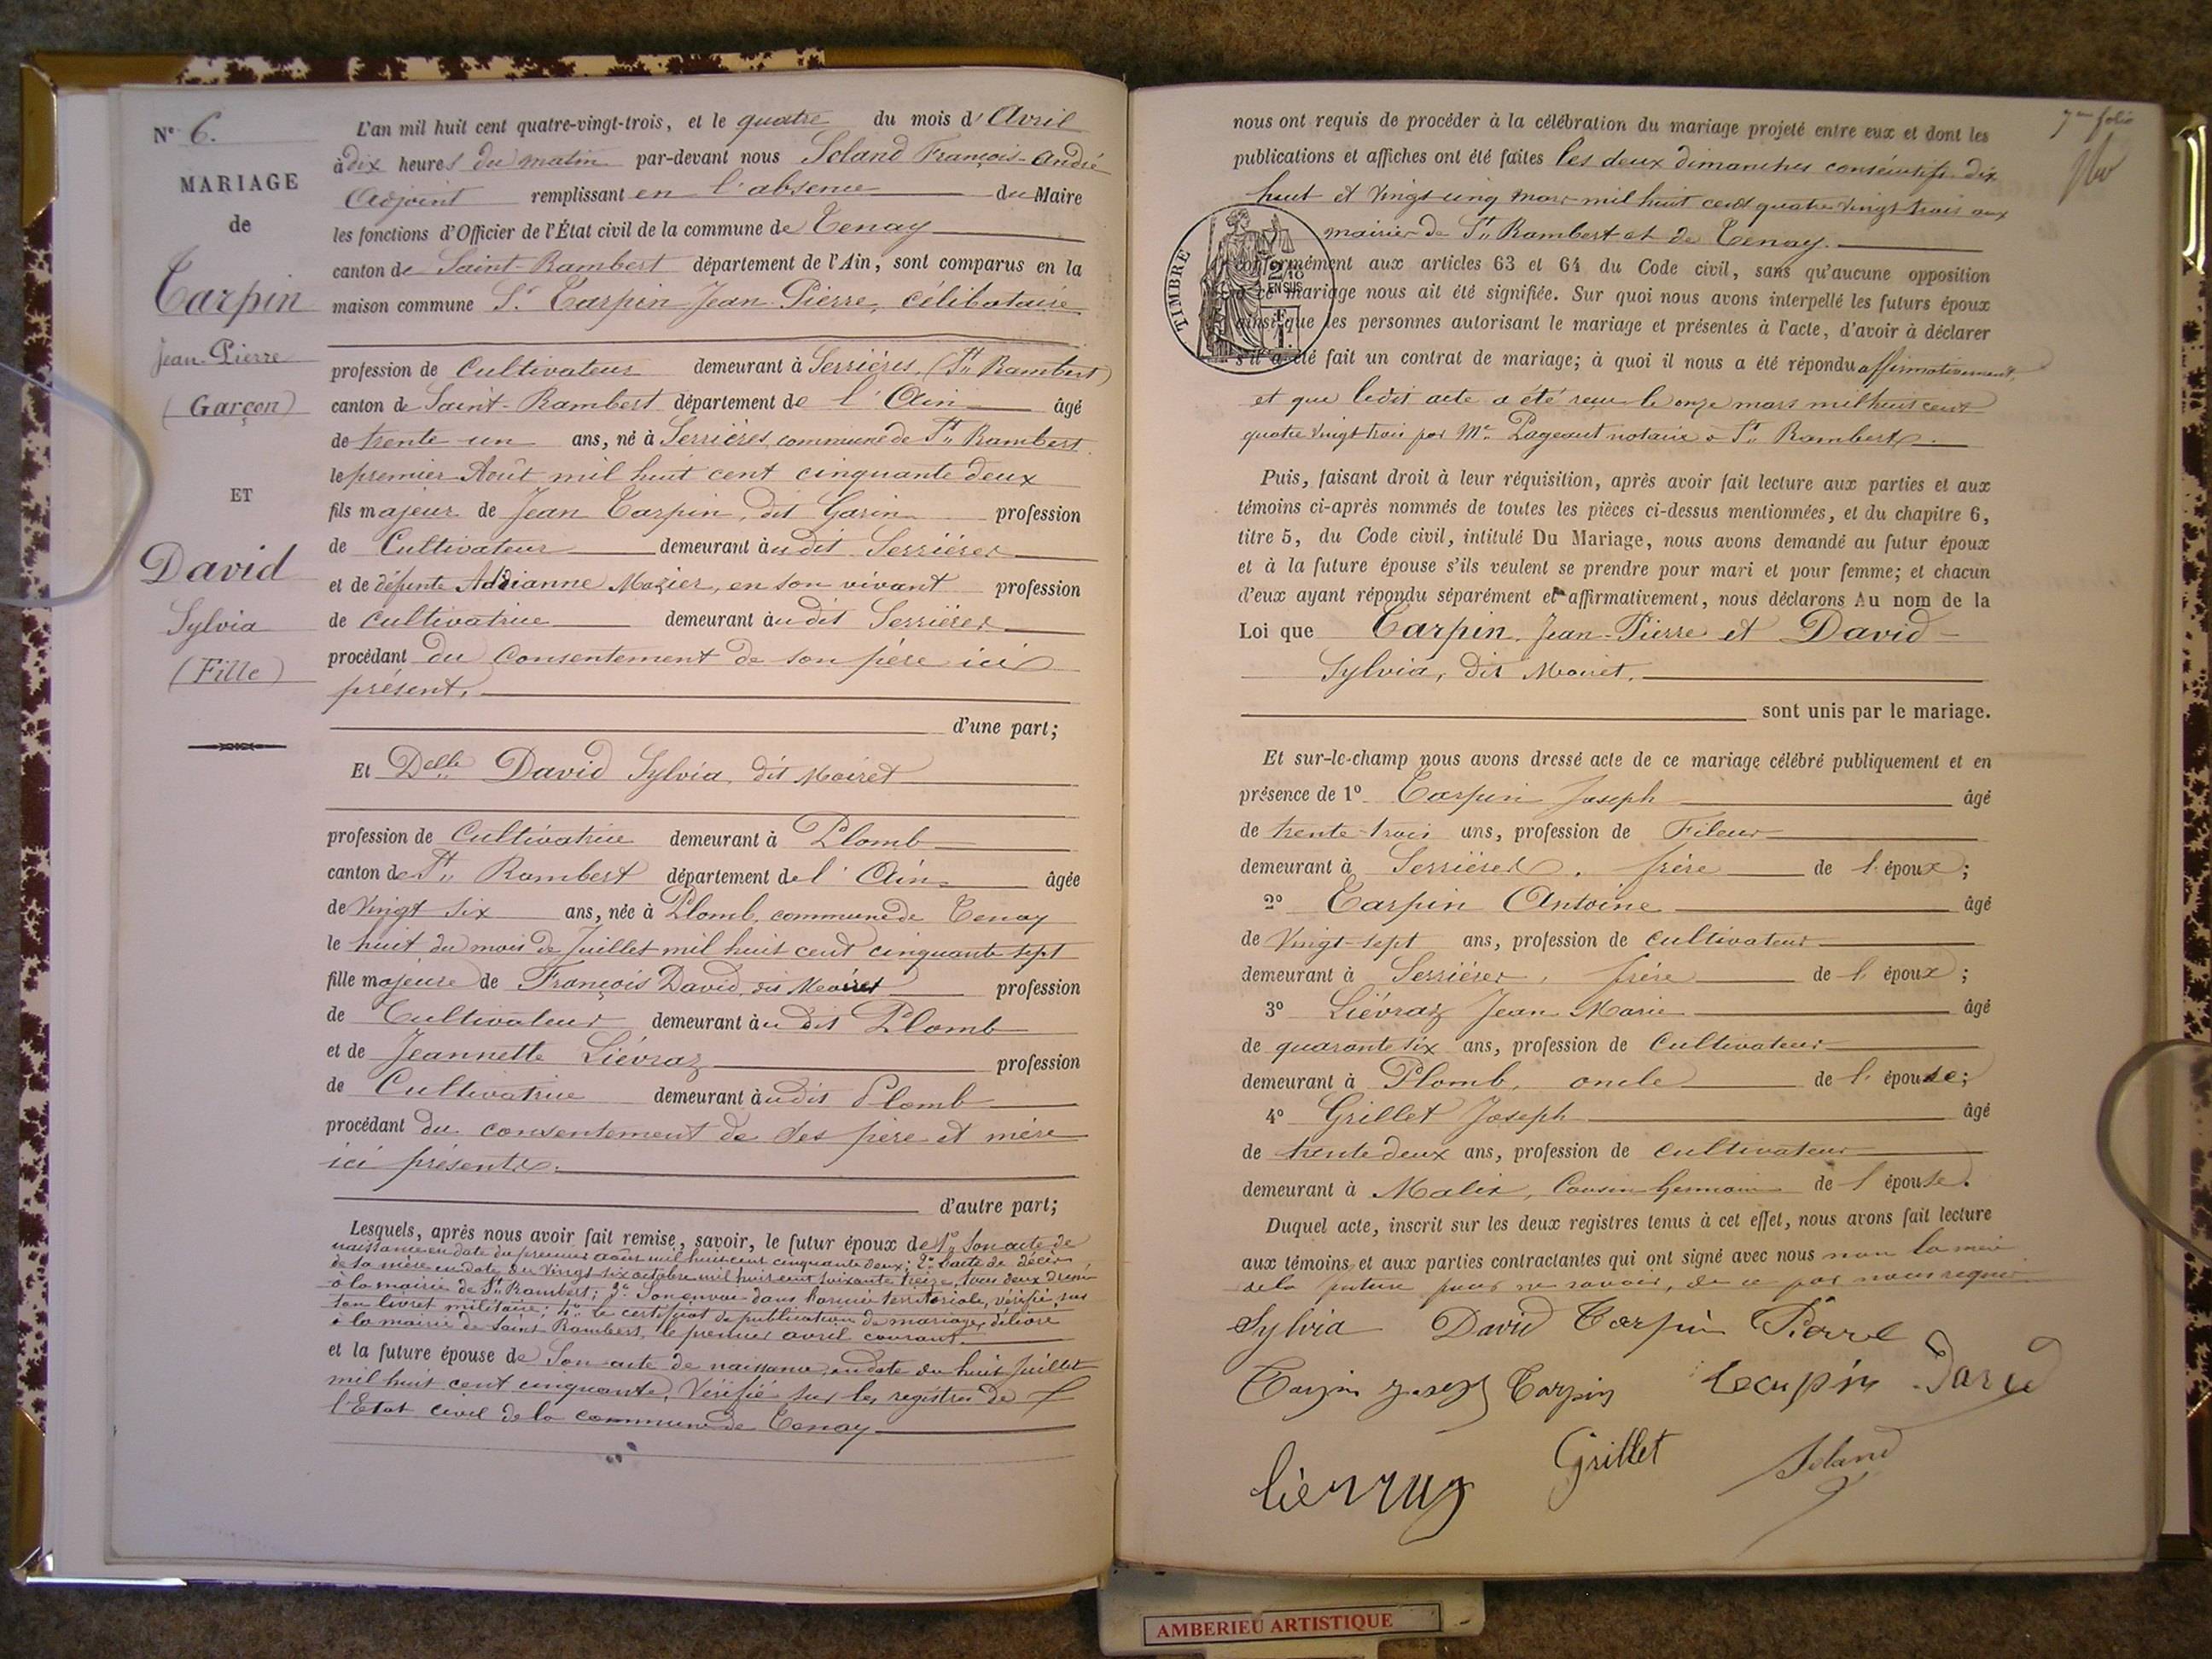 N° 6.
MARIAGE
de
Tarpin
Jean-Pierre
(Garçon)
ET
David
Sylvia
(Fille)
L'an mil huit cent quatre-vingt-trois, et le quatre du mois d'Avril
à dix heures du matin par-devant nous Soland François-André
Adjoint remplissant en l'absence du Maire
les fonctions d'Officier de l'État civil de la commune de Tenay
canton de Saint-Rambert département de l'Ain, sont comparus en la
maison commune Sr Tarpin Jean Pierre, célibataire
profession de Cultivateur demeurant à Serrières, (St Rambert)
canton de Saint-Rambert département de l'Ain âgé
de trente un ans, né à Serrières commune de St Rambert
le premier Août mil huit cent cinquante deux
fils majeur de Jean Tarpin, dit Garin profession
de Cultivateur demeurant àudit Serrières
et de défunte Adrianne Mazier, en son vivant profession
de cultivatrice demeurant àudit Serrières
procédant du consentement de son père ici
présent.
d'une part;
Et Delle David Sylvia, dit Moiret
profession de Cultivatrice demeurant à Plomb
canton de St Rambert département de l'Ain âgée
de vingt six ans, née à Plomb, commune de Tenay
le huit du mois de Juillet mil huit cent cinquante sept
fille majeure de François David, dit Moiret profession
de Cultivateur demeurant àudit Plomb
et de Jeannette Liévraz profession
de Cultivatrice demeurant àudit Plomb
procédant du consentement de ses père et mère
ici présents.
d'autre part;
Lesquels, après nous avoir fait remise, savoir, le futur époux de 1° Son acte de
naissance en date du premier août mil huit cent cinquante deux; 2° l'acte de décès
de sa mère en date du vingt-six octobre mil huit cent soixante treize, tous deux
à la mairie de St Rambert; 3° Son envoi dans l'armée territoriale, vérifié sur
son livret militaire; 4° Le certificat de publication de mariage, délivré
à la mairie de Saint-Rambert le premier avril courant.
et la future épouse de Son acte de naissance, en date du huit Juillet
mil huit cent cinquante, Vérifié sur les registres de
l'Etat civil de la commune de Tenay
7me folio
nous ont requis de procéder à la célébration du mariage projeté entre eux et dont les
publications et affiches ont été faites les deux dimanches consécutifs dix
huit et vingt cinq mars mil huit cent quatre vingt trois aux
mairies de St Rambert et de Tenay.
conformément aux articles 63 et 64 du Code civil, sans qu'aucune opposition
à ce mariage nous ait été signifiée. Sur quoi nous avons interpellé les futurs époux
ainsi que les personnes autorisant le mariage et présentes à l'acte, d'avoir à déclarer
s'il a été fait un contrat de mariage; à quoi il nous a été répondu affirmativement,
et que ledit acte a été reçu le onze mars mil huit cent
quatre vingt trois par Me Pageaut notaire à St Rambert.
TIMBRE
EN SUS
Puis, faisant droit à leur réquisition, après avoir fait lecture aux parties et aux
témoins ci-après nommés de toutes les pièces ci-dessus mentionnées, et du chapitre 6,
titre 5, du Code civil, intitulé Du Mariage, nous avons demandé au futur époux
et à la future épouse s'ils veulent se prendre pour mari et pour femme; et chacun
d'eux ayant répondu séparément et affirmativement, nous déclarons Au nom de la
Loi que Tarpin, Jean-Pierre et David
Sylvia, dit Moiret.
sont unis par le mariage.
Et sur-le-champ nous avons dressé acte de ce mariage célébré publiquement et en
présence de 1° Tarpin Joseph âgé
de trente-trois ans, profession de Fileur
demeurant à Serrières, frère de l'époux;
2° Tarpin Antoine âgé
de vingt-sept ans, profession de cultivateur
demeurant à Serrières, frère de l'époux;
3° Liévraz Jean Marie âgé
de quarante six ans, profession de Cultivateur
demeurant à Plomb, oncle de l'épouse;
4° Grillet Joseph âgé
de trente deux ans, profession de cultivateur
demeurant à Malix, Cousin Germain de l'épouse.
Duquel acte, inscrit sur les deux registres tenus à cet effet, nous avons fait lecture
aux témoins et aux parties contractantes qui ont signé avec nous non la mère
de la future pour ne savoir, de ce par nous requis
Sylvia David Tarpin Pierre
Tarpin Joseph Tarpin David
Grillet Soland
AMBERIEU ARTISTIQUE